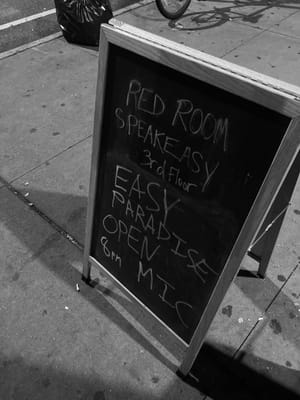 RED ROOM
SPEAKEASY
3rd Floor
EASY
PARADISE
OPEN
8pm MIC